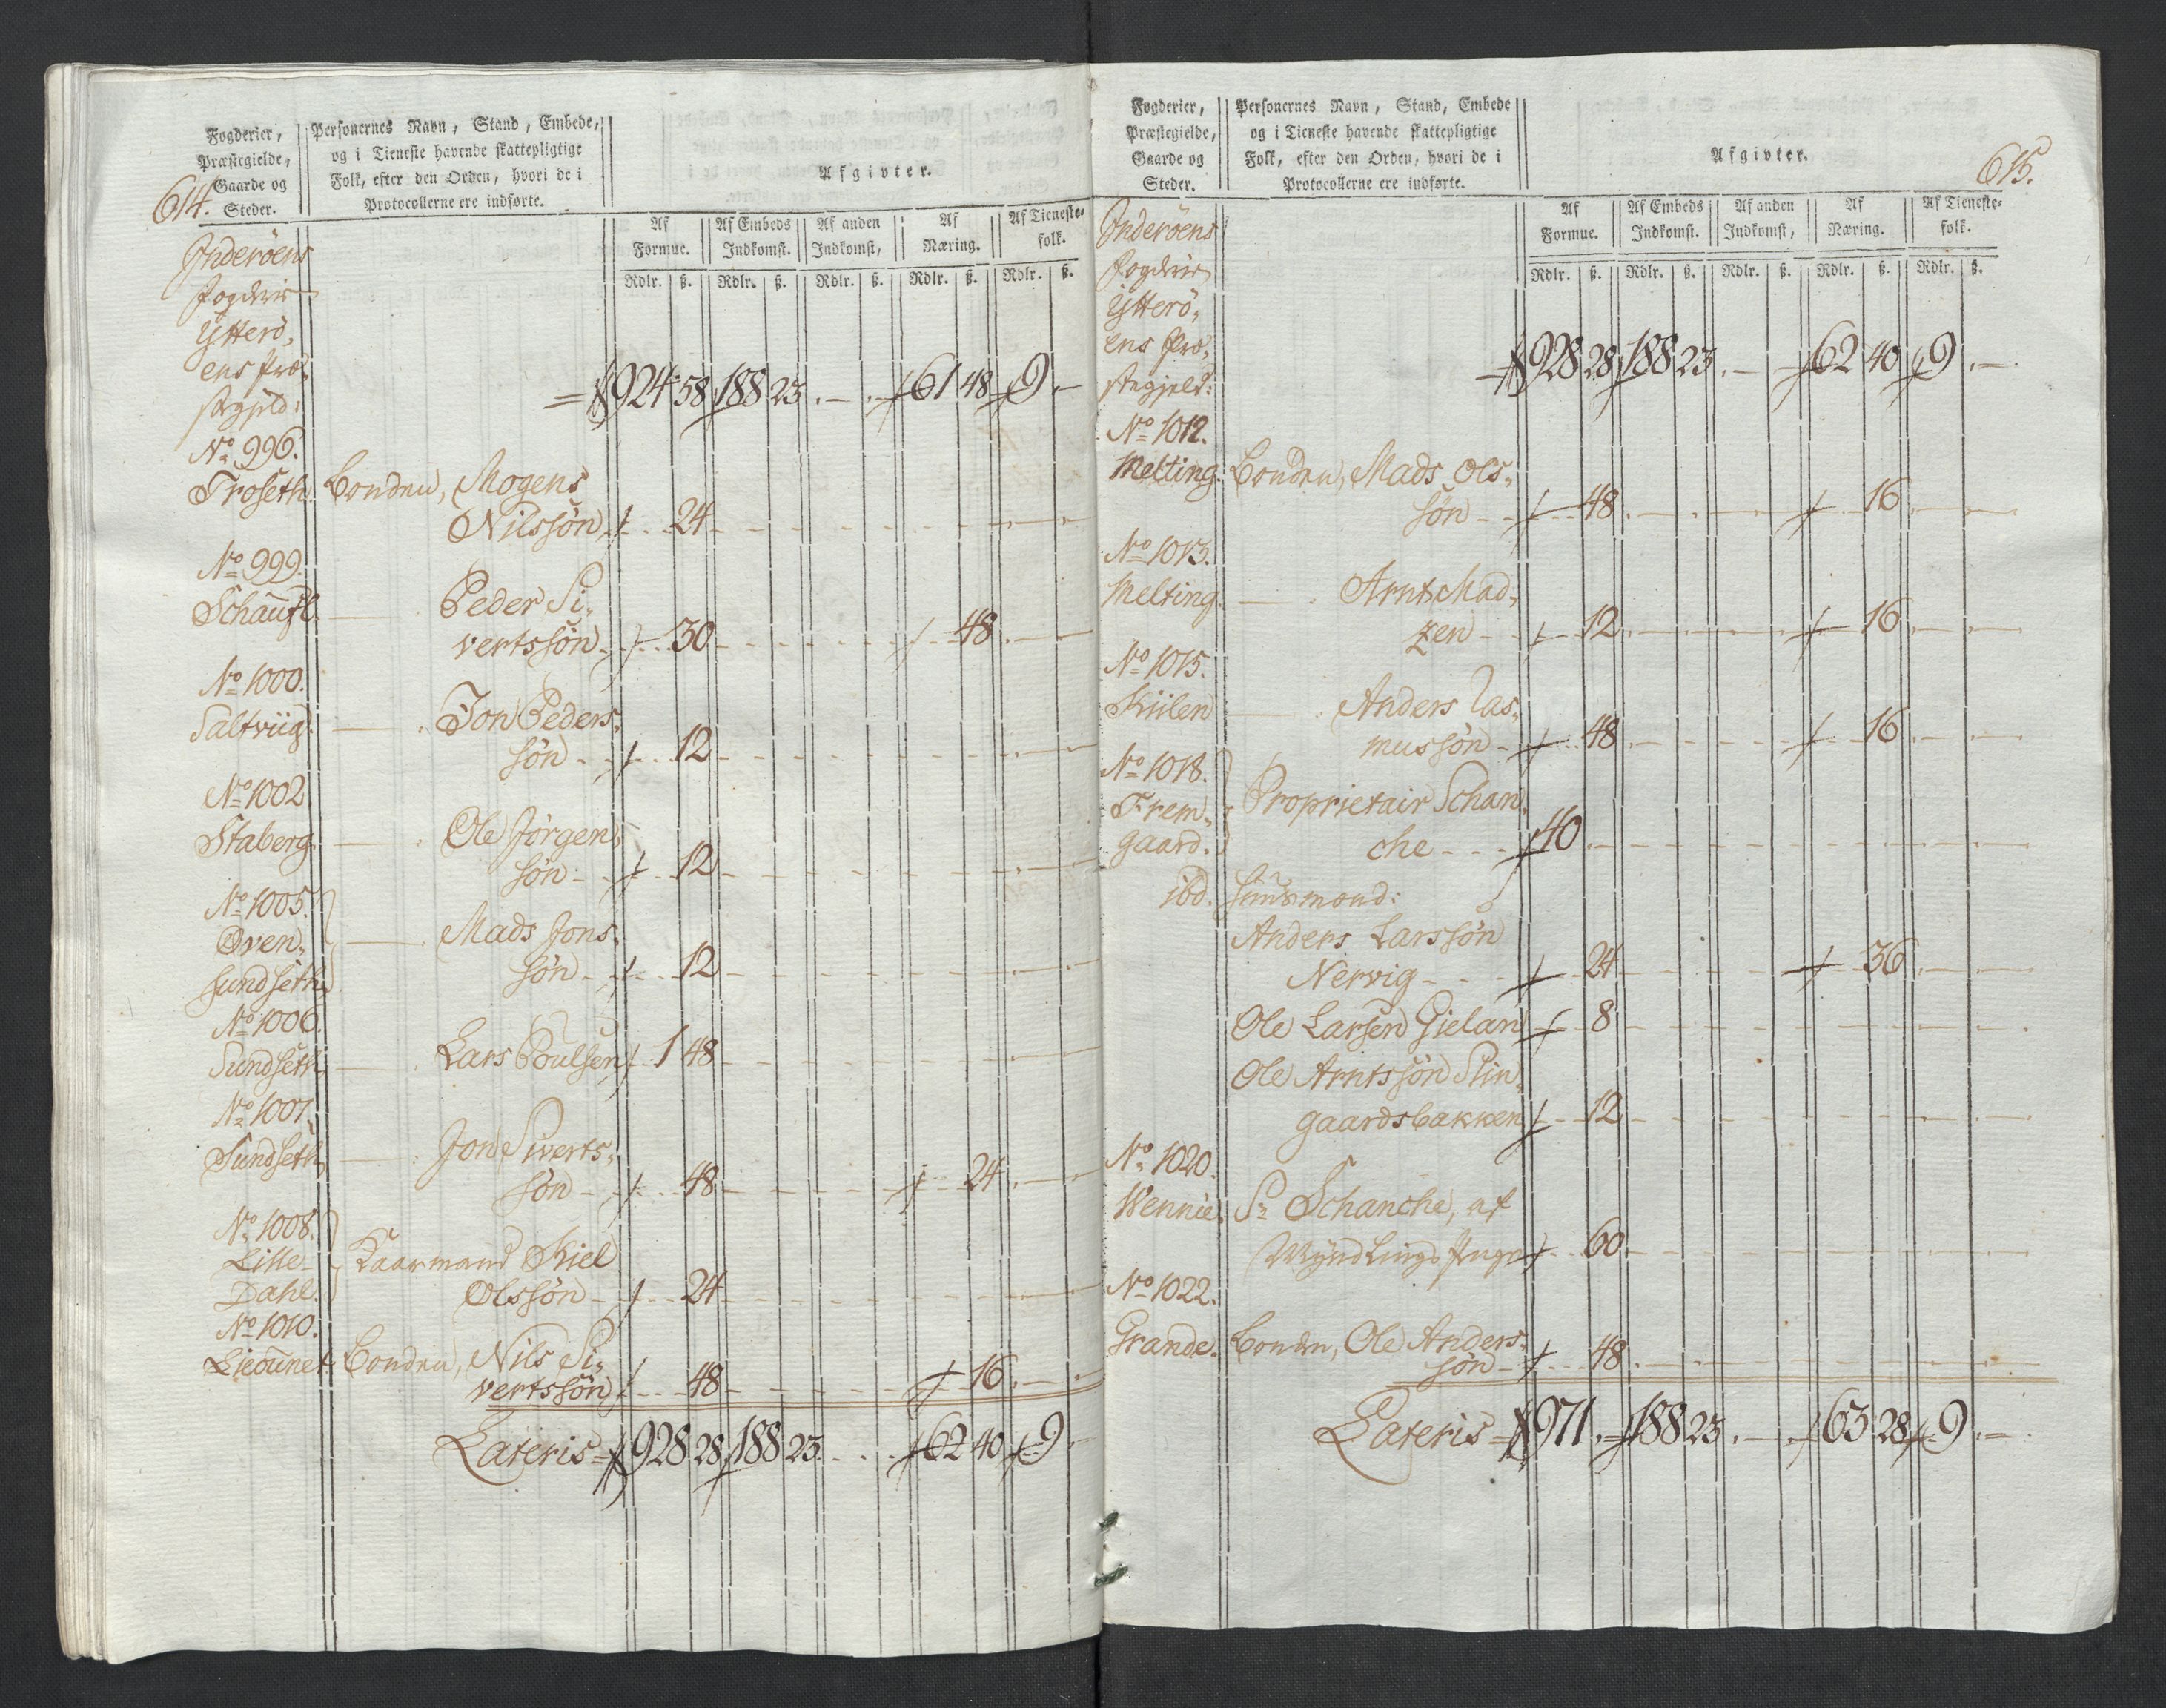 614.
Fogderier,
Præstegielde,
Gaarde og
Steder.
Personernes Navn, Stand, Embede,
og i Tieneste havende skattepligtige
Folk, efter den Orden, hvori de i
Protocollerne ere indførte.
Afgivter.
Af Formue. Af Embeds Indkomst. Af anden Indkomst, Af Næring. Af Tieneste-folk.
Rdlr. ß. Rdlr. ß. Rdlr. ß. Rdlr. ß. Rdlr. ß.
Inderöens
Fogderie
Ytterö,
ens Præ,
stegjeld: 924 58 188 23 . — 61 48 9 . —
No 996.
Troseth. Bonden, Mogens
Nilssön 24
No 999.
Peder Si,
vertssön 30 48
No 1000.
Saltviig. Jon Peders,
sön 12
No 1002.
Staberg. Ole Jörgen,
sön 12
No 1005.
Oven, Mads Jons,
sundseth sön 12
No 1006.
Sundseth Lars Poulsen 1 48
No 1007.
Sundseth Jon Siverts,
sön 48 24
No 1008.
Lille Kaarmand Kiel
Dahl. Olssön 24
No 1010.
Lieounet. Bonden, Nils Si,
vertssön 48 16
Lateris 928 28 188 23 62 40 9
615.
Fogderier,
Præstegielde,
Gaarde og
Steder.
Personernes Navn, Stand, Embede
og i Tieneste havende skattepligtige
Folk, efter den Orden, hvori de i
Protocollerne ere indførte.
Afgivter.
Af Formue. Af Embeds Indkomst. Af anden Indkomst, Af Næring. Af Tieneste-folk.
Rdlr. ß. Rdlr. ß. Rdlr. ß. Rdlr. ß. Rdlr. ß.
Inderöens
Fogderie
Ytterö,
ens Præ,
stegjeld: 928 28 188 23 . — 62 40 9 . —
No 1012.
Melting. Bonden, Mads Ols,
sön 48 16
No 1013.
Melting. Arnt Mad,
zen 12 16
No 1015.
Kiilen Anders Ras,
mussön 48 16
No 1018.
Frem, Proprietair Schan,
gaard. che 40
ibd. Huusmænd:
Anders Larssön
Nervig 24 36
Ole Larsen Gielan 8
Ole Arntssön Stin,
gaardsbakken 12
No 1020.
Wennie. Sr Schanche, af
Myndlings Penge 60
No 1022.
Grande. Bonden, Ole Anders,
sön 48
Lateris 971 . — 188 23 . — 63 28 9 . —